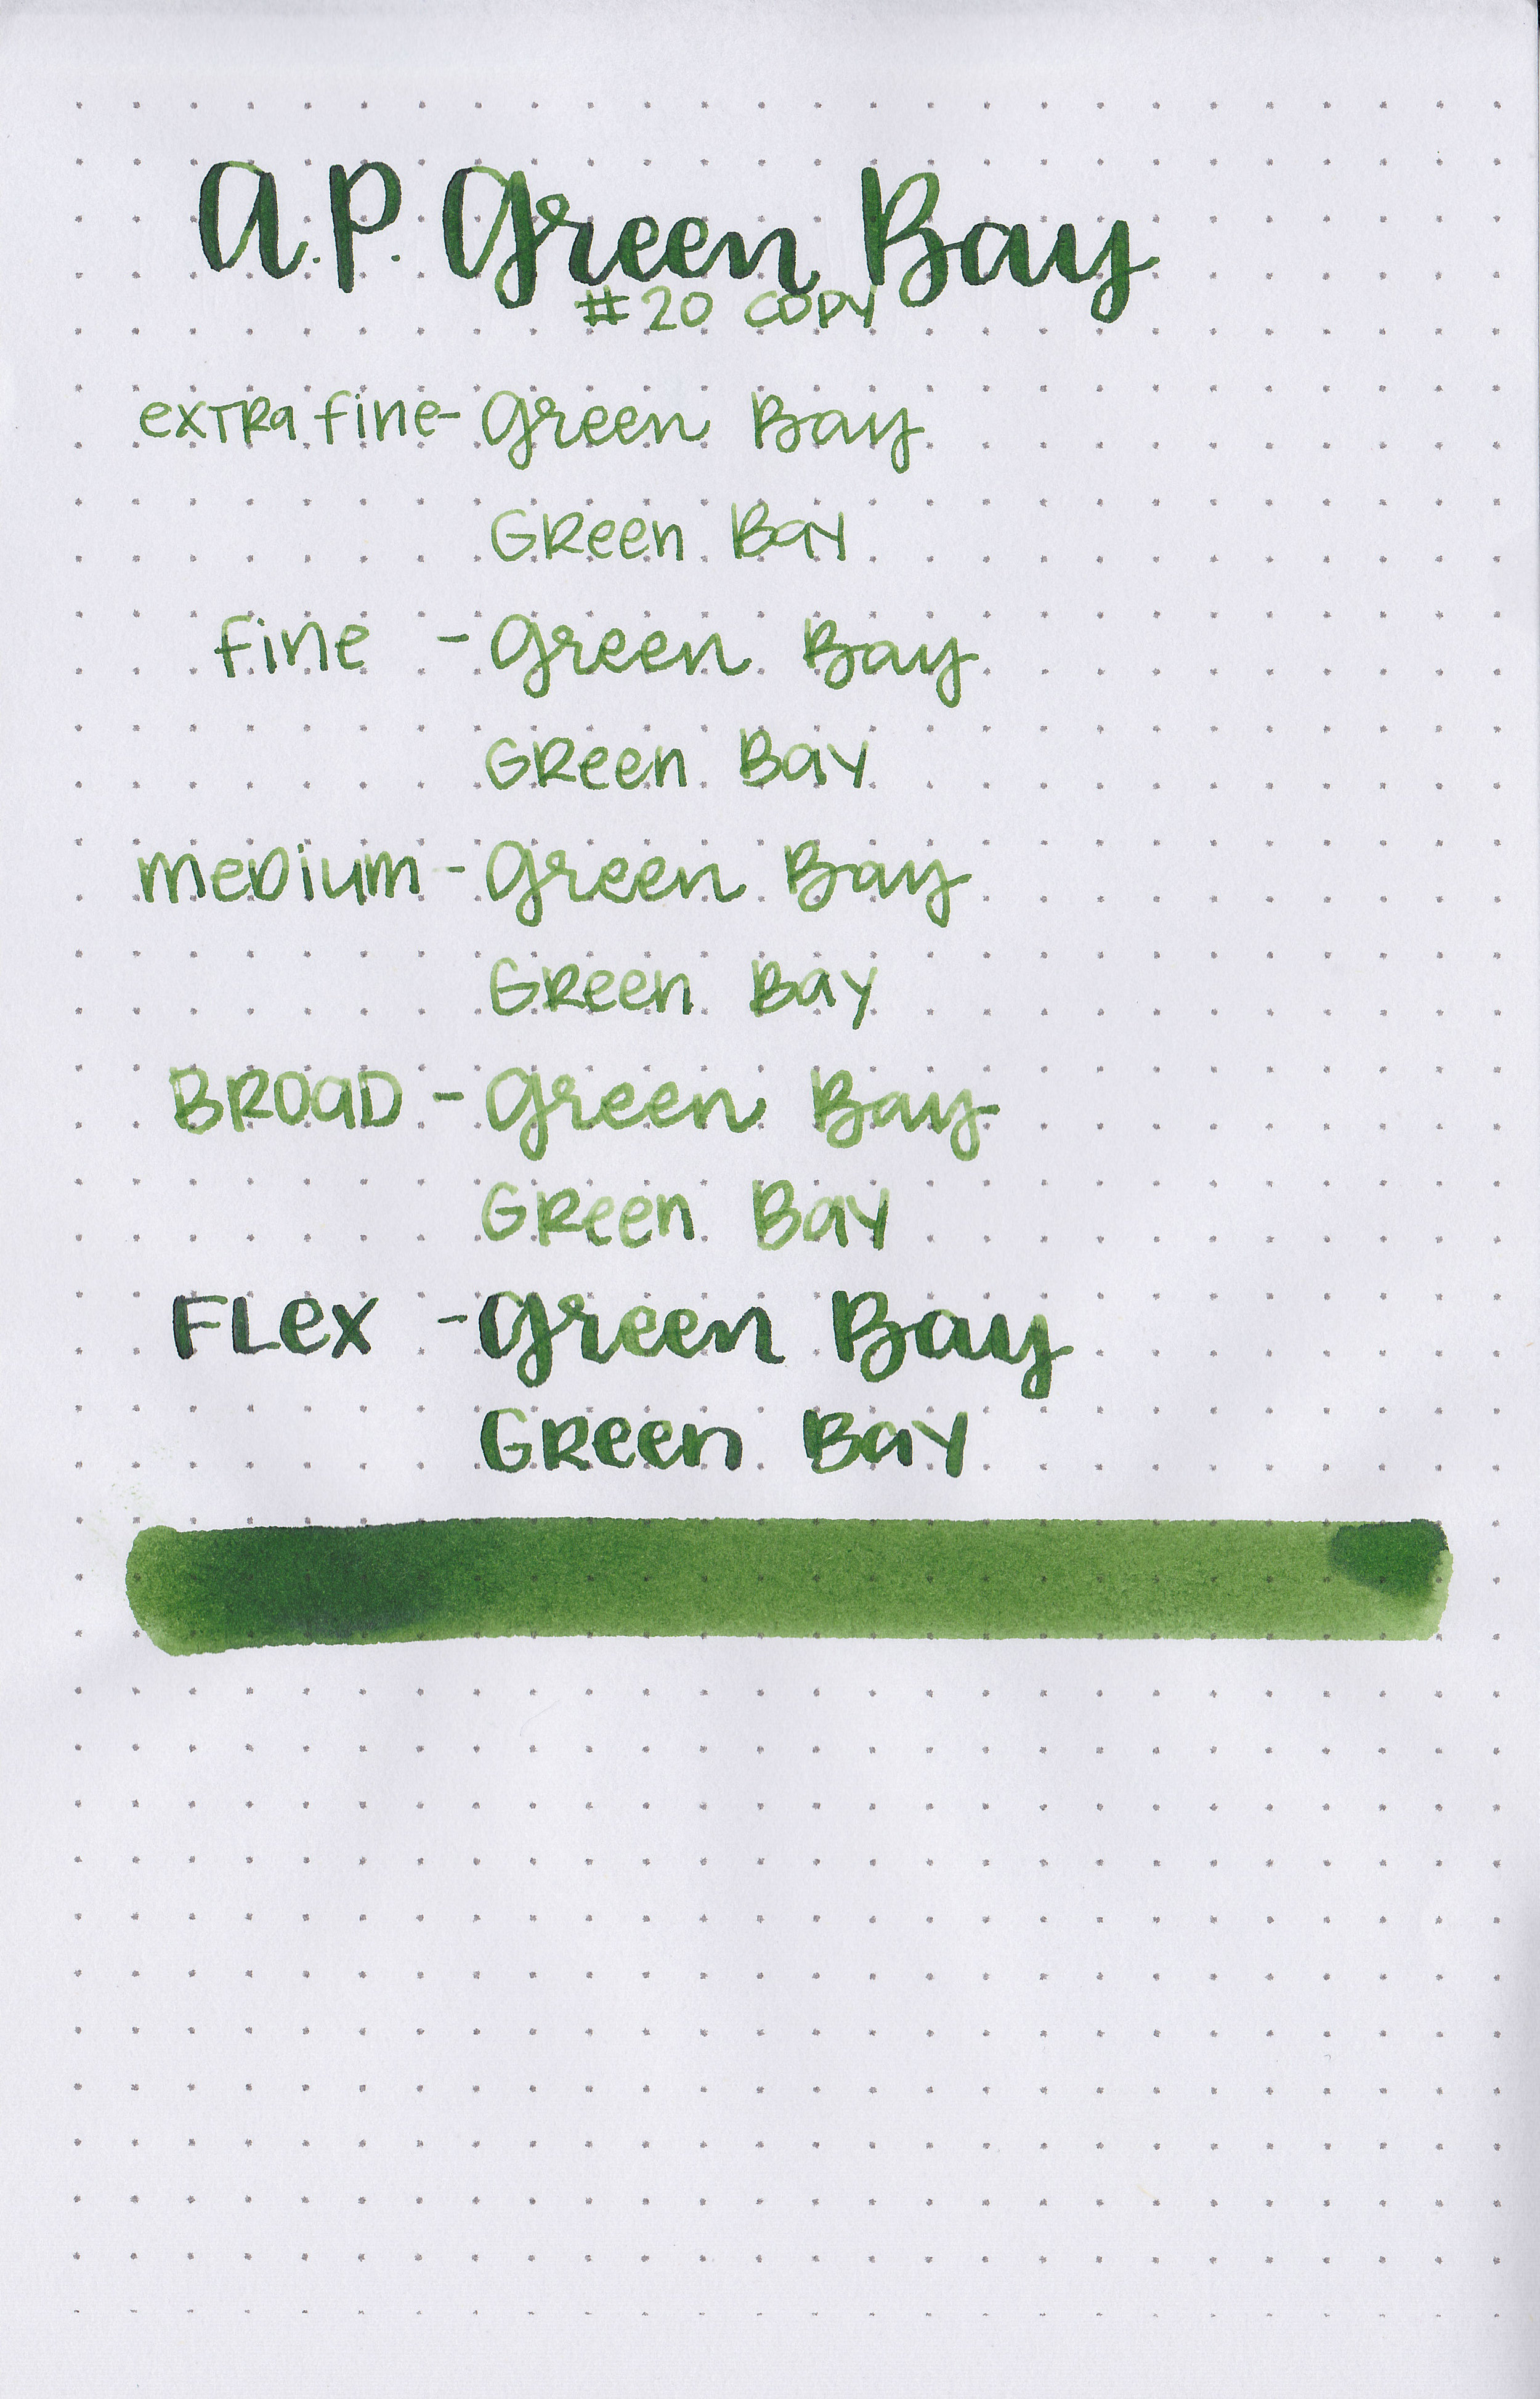 a.P. Green Bay
#20 COPY
extra fine - Green Bay
Green Bay
fine - Green Bay
Green Bay
medium - Green Bay
Green Bay
BROaD - Green Bay
Green Bay
FLex - Green Bay
Green Bay